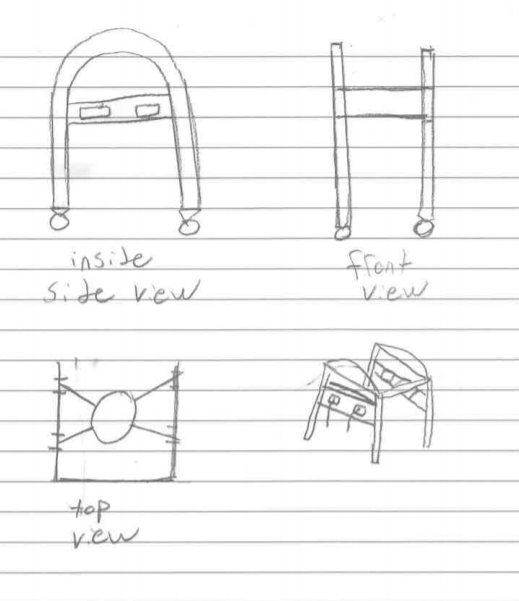 inside
side view
front
view
top
view